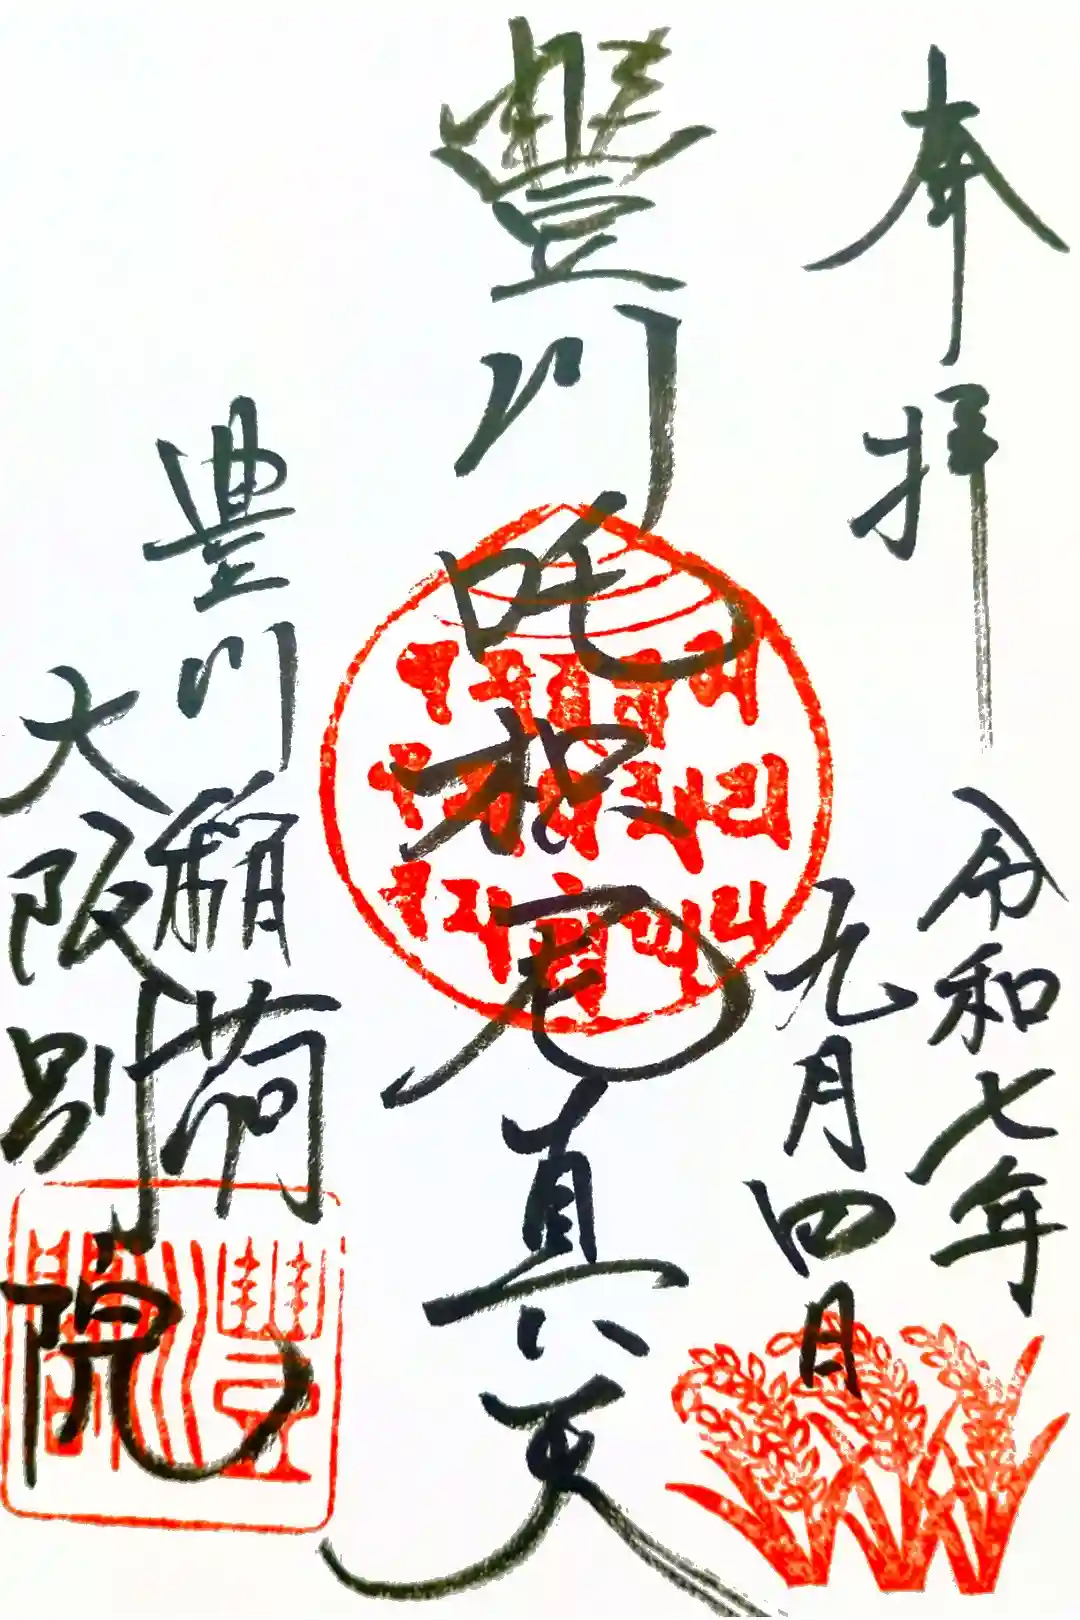 奉拝
令和七年
九月四日
豐川吒枳尼真天
豊川稲荷
大阪別院